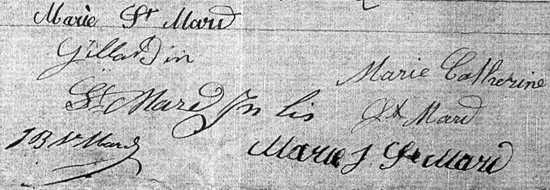 Marie St Mard
Gillardin
Marie Catherine
St Mard
St Mard Jn lis
J B St Mard
Marie J St Mard